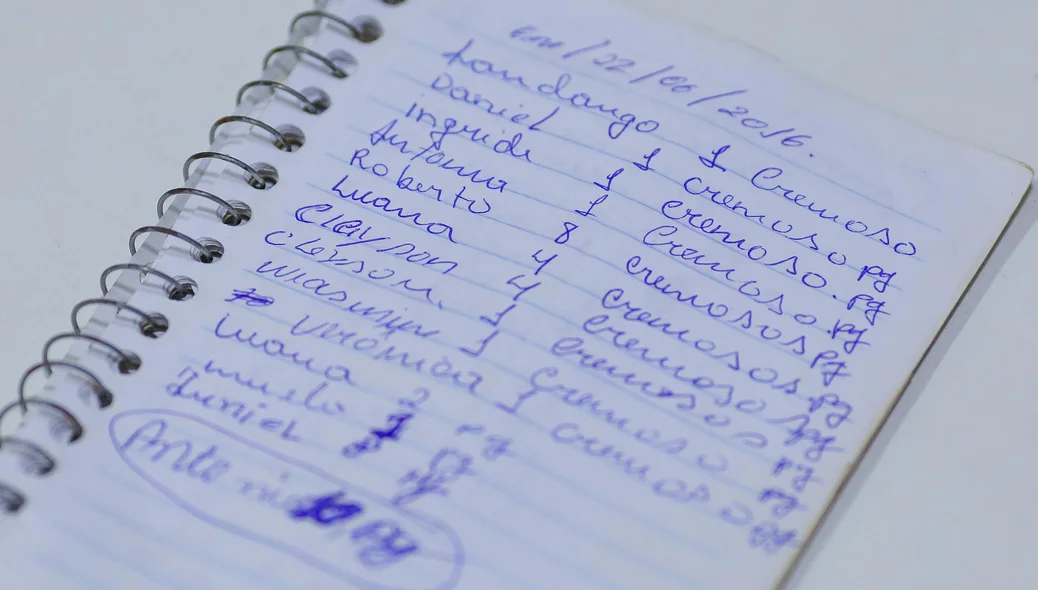 em/22/06/2016.
Fandango 1 Cremoso
Daniel 1 cremoso pg
Ingride 1 cremoso. pg
Antonia 1 Cremoso. pg
Roberto 8 cremosos pg
Luana 4 cremosos. pg
Cleyson 4 cremosos pg
Clerson. 1 cremoso pg
1 Cremoso pg
Veronica 1 cremoso pg
Luana 2 pg
pg
Daniel pg
pg